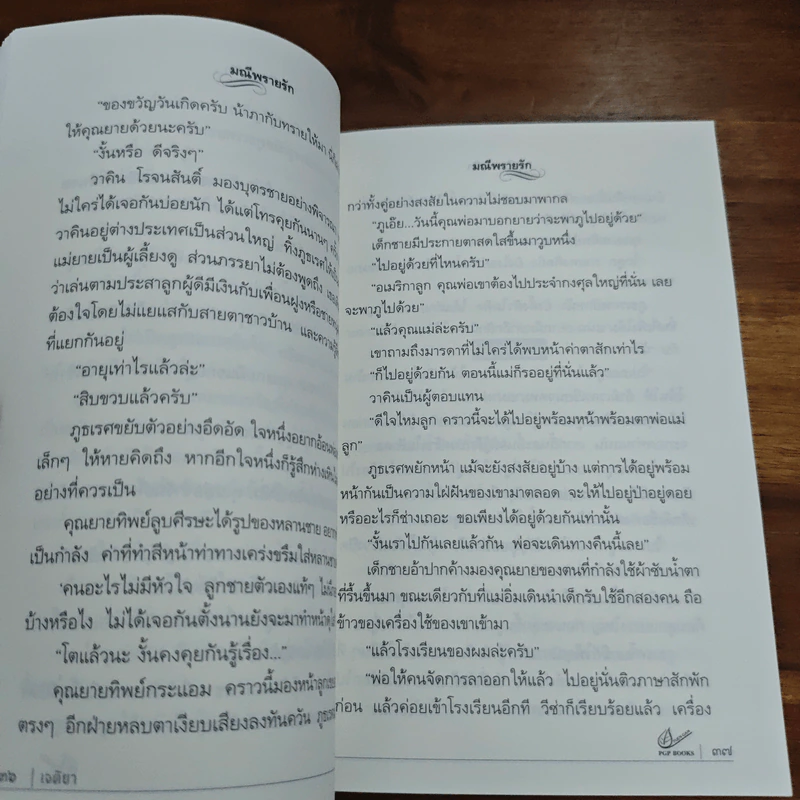 มณีพรายรัก
“ของขวัญวันเกิดครับ น้าภากับทรายให้มา
ให้คุณยายด้วยนะครับ”
“งั้นหรือ ดีจริงๆ”
วาคิน โรจนสันติ์ มองบุตรชายอย่าง
ไม่ใคร่ได้เจอกันบ่อยนัก ได้แต่โทรคุยกันนานๆ
วาคินอยู่ต่างประเทศเป็นส่วนใหญ่ ทิ้งภูธเรศ
แม่ยายเป็นผู้เลี้ยงดู ส่วนภรรยาไม่ต้องพูดถึง
ว่าเล่นตามประสาลูกผู้ดีมีเงินกับเพื่อนฝูงหรือ
ต้องใจโดยไม่แยแสกับสายตาชาวบ้าน และ
ที่แยกกันอยู่
“อายุเท่าไรแล้วล่ะ”
“สิบขวบแล้วครับ”
ภูธเรศขยับตัวอย่างอึดอัด ใจหนึ่งอยาก
เล็กๆ ให้หายคิดถึง หากอีกใจหนึ่งก็รู้สึกห่างเหิน
อย่างที่ควรเป็น
คุณยายทิพย์ลูบศีรษะได้รูปของหลานชาย
เป็นกำลัง ค่าที่ทำสีหน้าท่าทางเคร่งขรึมใส่หลานชาย
‘คนอะไรไม่มีหัวใจ ลูกชายตัวเองแท้ๆ
บ้างหรือไง ไม่ได้เจอกันตั้งนานยังจะมาทำหน้า
“โตแล้วนะ งั้นคงคุยกันรู้เรื่อง...”
คุณยายทิพย์กระแอม คราวนี้มองหน้า
ตรงๆ อีกฝ่ายหลบตาเงียบเสียงลงทันควัน
๓๖ | เจติยา
มณีพรายรัก
กว่าทั้งคู่อย่างสงสัยในความไม่ชอบมาพากล
“ภูเอ๊ย...วันนี้คุณพ่อมาบอกยายว่าจะพาภูไปอยู่ด้วย”
เด็กชายมีประกายตาสดใสขึ้นมาวูบหนึ่ง
“ไปอยู่ด้วยที่ไหนครับ”
“อเมริกาลูก คุณพ่อเขาต้องไปประจำกงศุลใหญ่ที่นั่น เลย
จะพาภูไปด้วย”
“แล้วคุณแม่ล่ะครับ”
เขาถามถึงมารดาที่ไม่ใคร่ได้พบหน้าค่าตาสักเท่าไร
“ก็ไปอยู่ด้วยกัน ตอนนี้แม่ก็รออยู่ที่นั่นแล้ว”
วาคินเป็นผู้ตอบแทน
“ดีใจไหมลูก คราวนี้จะได้ไปอยู่พร้อมหน้าพร้อมตาพ่อแม่
ลูก”
ภูธเรศพยักหน้า แม้จะยังสงสัยอยู่บ้าง แต่การได้อยู่พร้อม
หน้ากันเป็นความใฝ่ฝันของเขามาตลอด จะให้ไปอยู่ป่าอยู่ดอย
หรืออะไรก็ช่างเถอะ ขอเพียงได้อยู่ด้วยกันเท่านั้น
“งั้นเราไปกันเลยแล้วกัน พ่อจะเดินทางคืนนี้เลย”
เด็กชายอ้าปากค้างมองคุณยายของตนที่กำลังใช้ผ้าซับน้ำตา
ที่รื้นขึ้นมา ขณะเดียวกับที่แม่อิ่มเดินนำเด็กรับใช้อีกสองคน ถือ
ข้าวของเครื่องใช้ของเขาเข้ามา
“แล้วโรงเรียนของผมล่ะครับ”
“พ่อให้คนจัดการลาออกให้แล้ว ไปอยู่นั่นติวภาษาสักพัก
ก่อน แล้วค่อยเข้าโรงเรียนอีกที วีซ่าก็เรียบร้อยแล้ว เครื่อง
PGP BOOKS | ๓๗